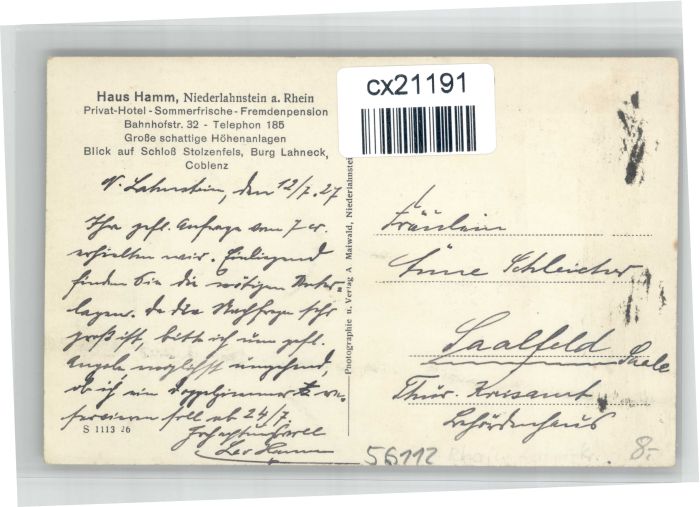 Haus Hamm, Niederlahnstein a. Rhein
Privat-Hotel - Sommerfrische - Fremdenpension
Bahnhofstr. 32 - Telephon 185
Große schattige Höhenanlagen
Blick auf Schloß Stolzenfels, Burg Lahneck,
Coblenz
N. Lahnstein, den 12/7. 27
Ihre gefl. Anfrage vom 7 cr.
erhielten wir. Einliegend
finden Sie die nötigen Unter=
lagen. Da die Nachfrage sehr
groß ist, bitte ich um gefl.
Angabe möglichst umgehend,
ob ich ein Doppelzimmer re=
servieren soll ab 24/7
Hochachtungsvoll
Leo Hamm
S 1113 26
Photographie u. Verlag A Maiwald, Niederlahnstein
cx21191
Fräulein
Änne Schleicher
Saalfeld Saale
Thür. Kreisamt
Behördenhaus
56112
8.-